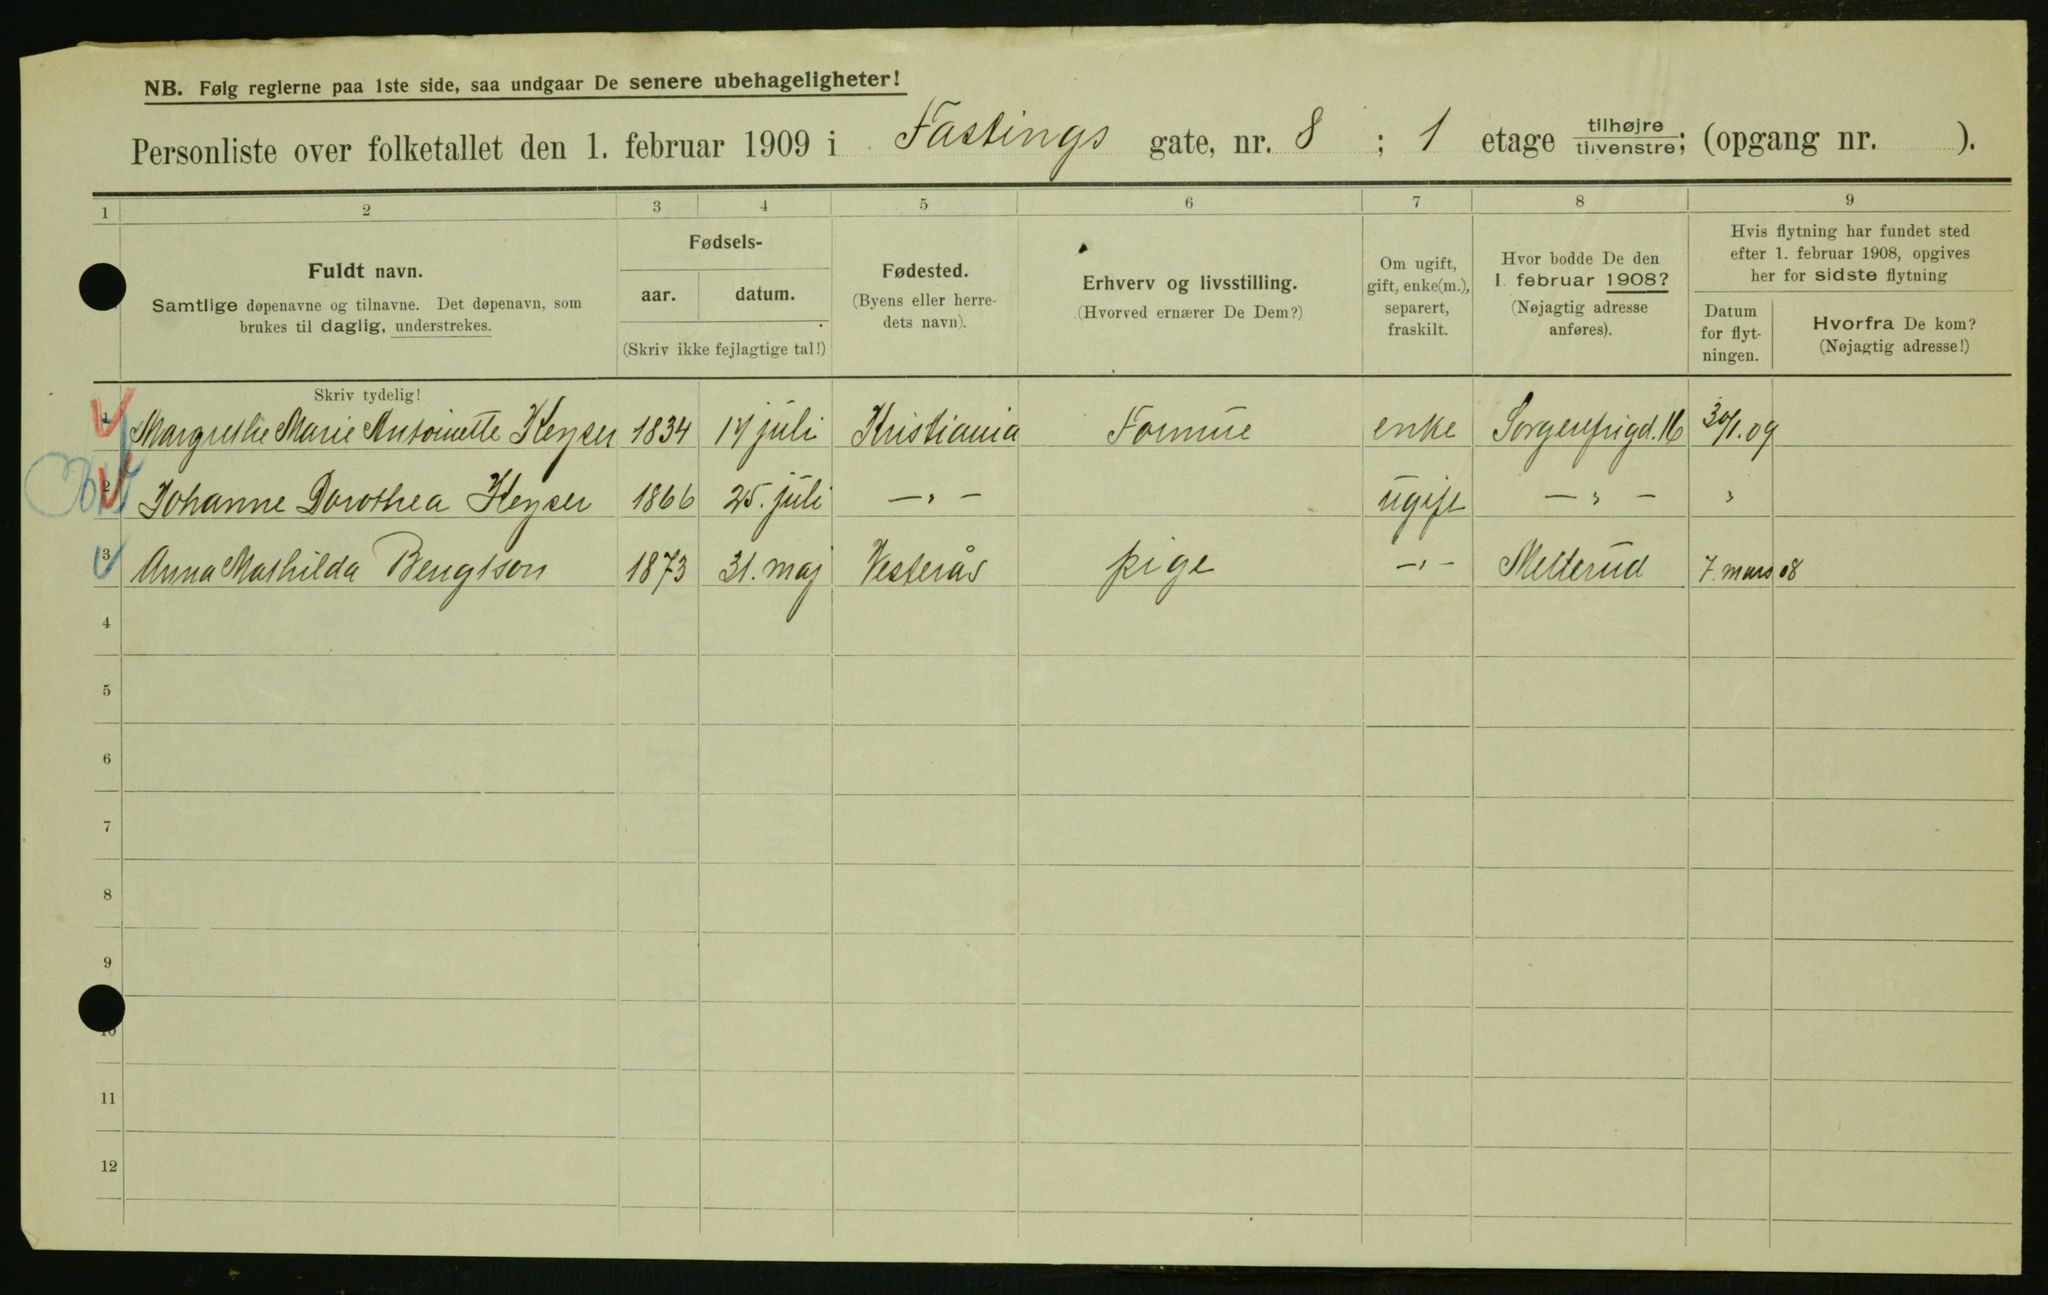 NB. Følg reglerne paa 1ste side, saa undgaar De senere ubehageligheter!
Personliste over folketallet den 1. februar 1909 i Fastings gate, nr. 8 ; 1 etage tilhøjre tilvenstre; (opgang nr. ).
1 2 3 4 5 6 7 8 9
Fuldt navn.
Samtlige døpenavne og tilnavne. Det døpenavn, som
brukes til daglig, understrekes.
Fødsels-
aar. datum.
(Skriv ikke fejlagtige tal!)
Fødested.
(Byens eller herre-
dets navn).
Erhverv og livsstilling.
(Hvorved ernærer De Dem?)
Om ugift,
gift, enke(m.),
separert,
fraskilt.
Hvor bodde De den
1. februar 1908?
(Nøjagtig adresse
anføres).
Hvis flytning har fundet sted
efter 1. februar 1908, opgives
her for sidste flytning
Datum
for flyt-
ningen.
Hvorfra De kom?
(Nøjagtig adresse!)
Skriv tydelig!
1 Margrethe Marie Antoinette Keyser 1834 17 juli Kristiania Formue enke Sorgenfrigd. 16 30/1.09
2 Johanne Dorothea Keyser 1866 25. juli — " — ugift — " — "
3 Anna Mathilda Bengtson 1873 31. maj Vesterås pige — " — Mellerud 7. mars 08
4
5
6
7
8
9
10
11
12